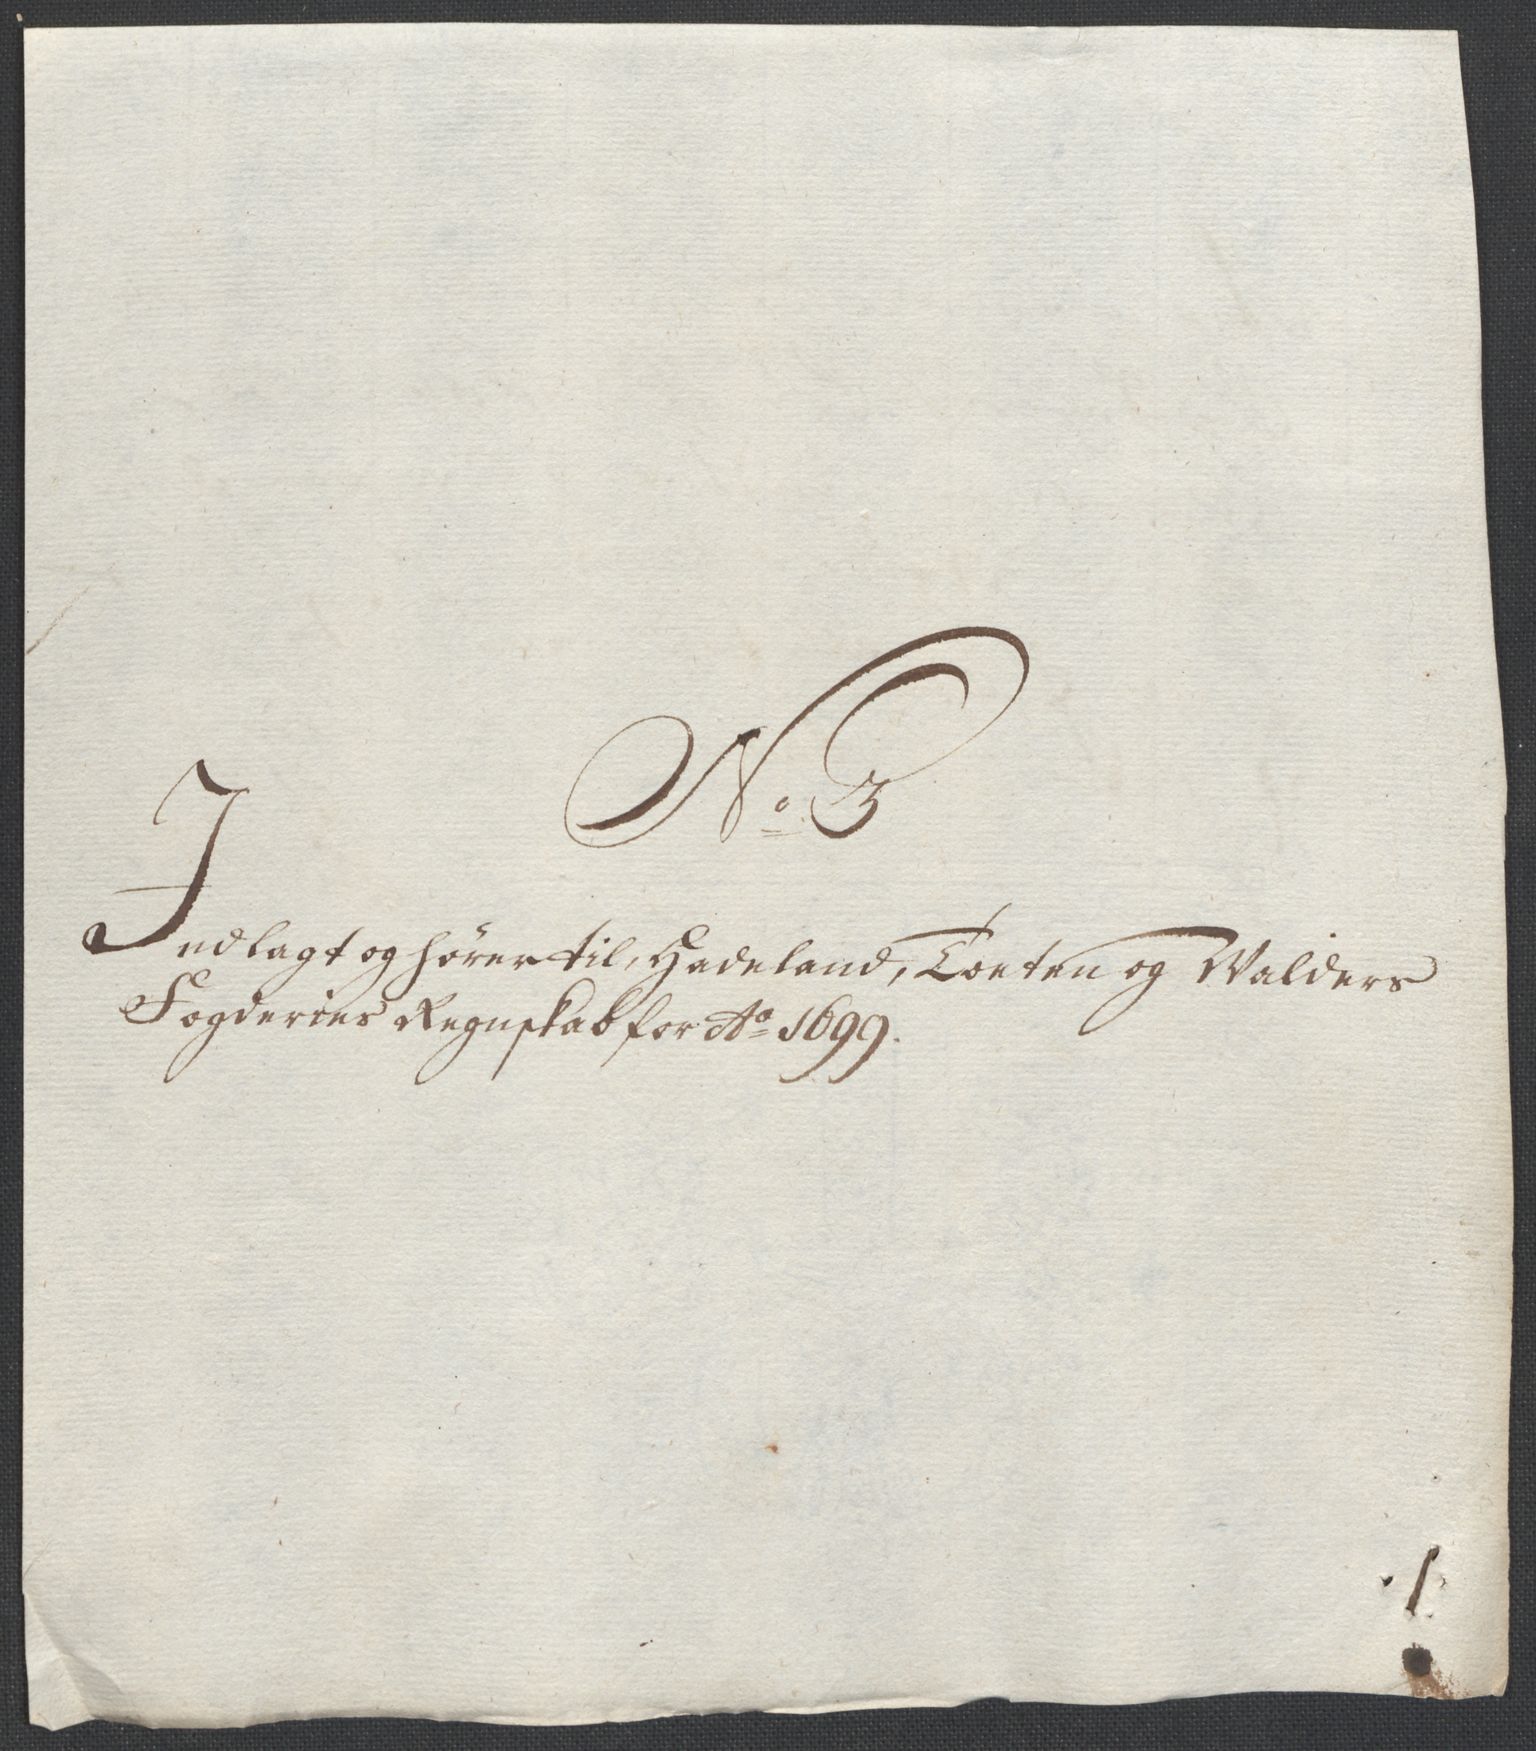 No 3
Indlagt og hører til, Hadeland, Toeten og Walders
Fogderies Regnskab for Ao 1699.
1